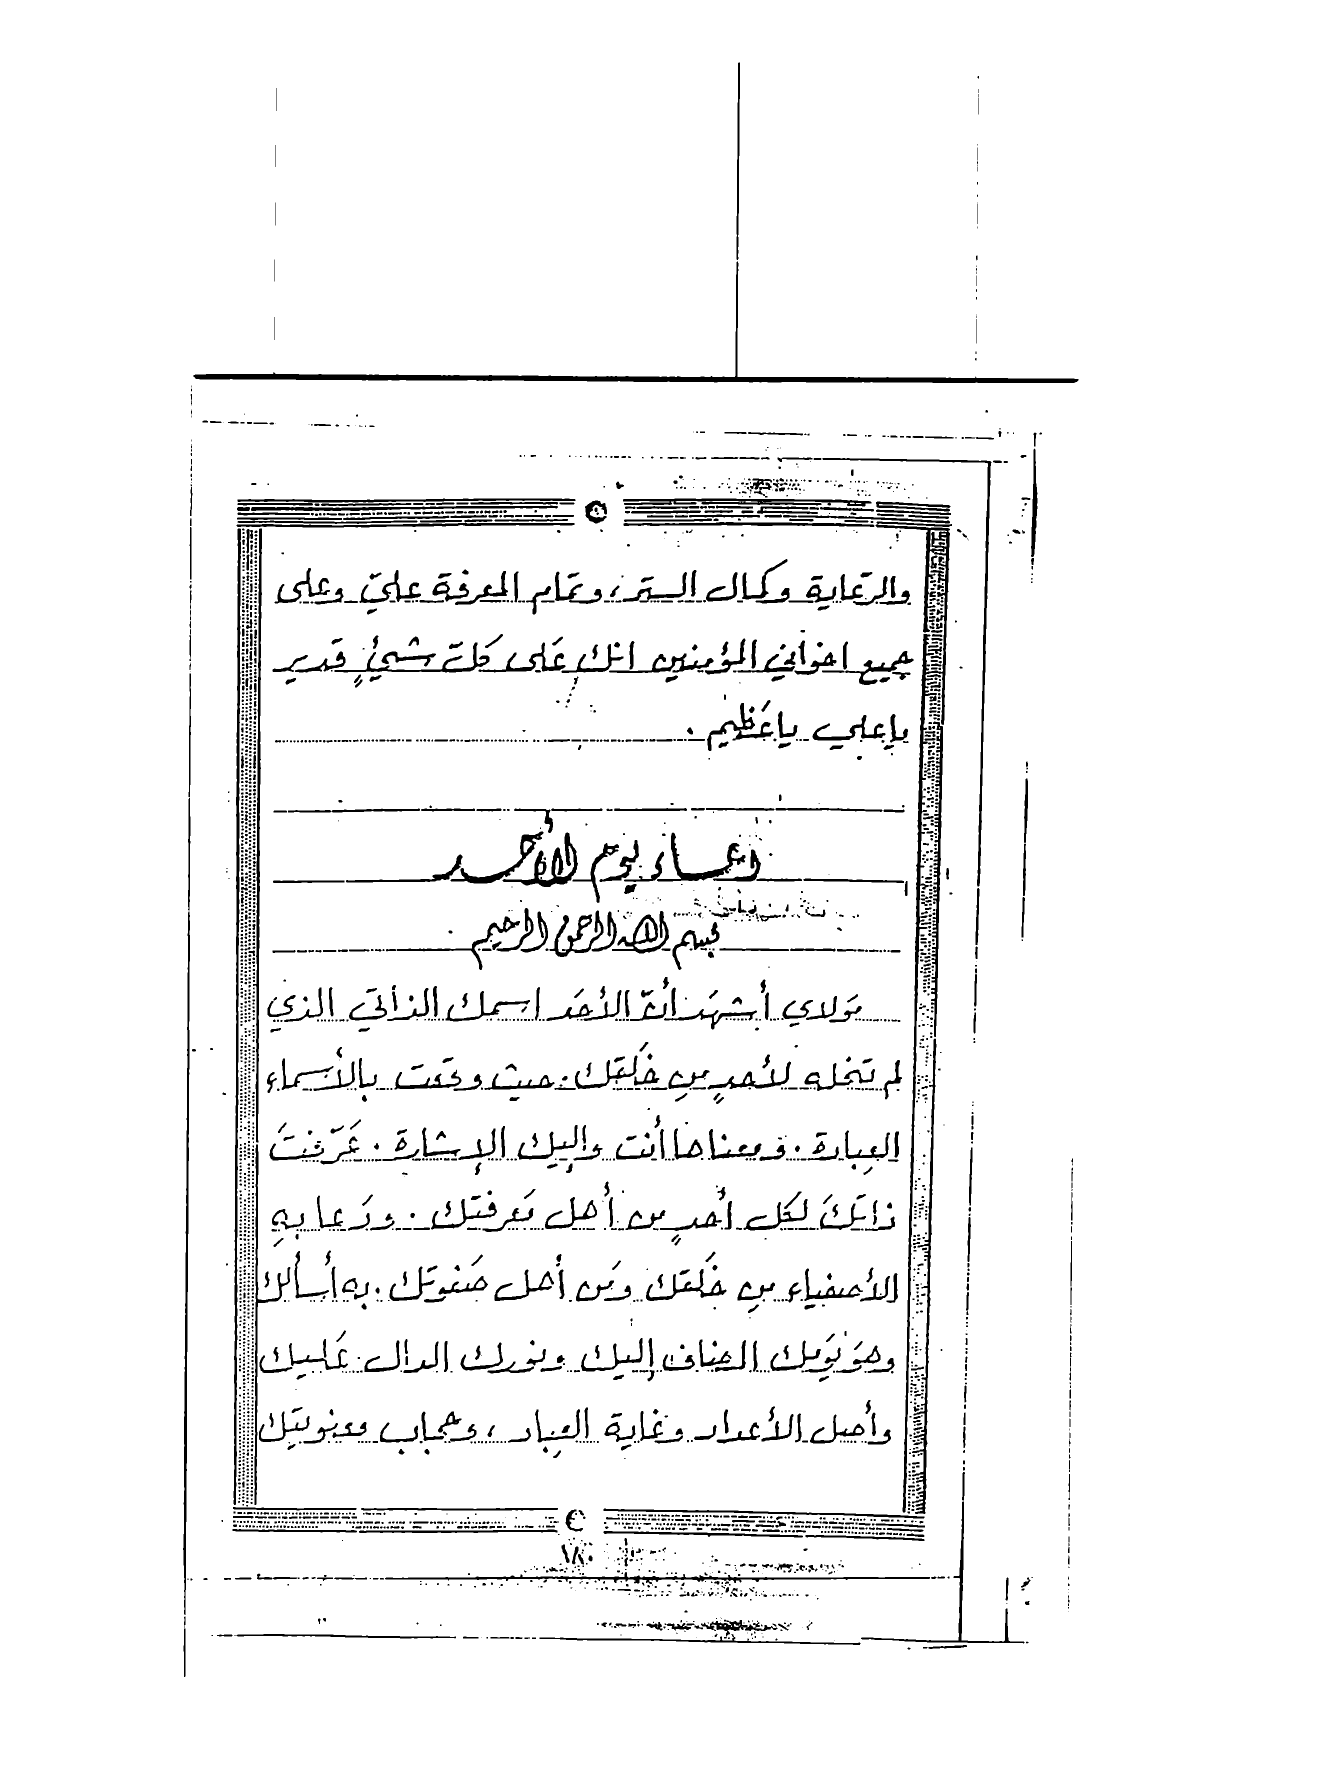 والرّعاية وكمال الستر، وتمام المعرفة عليّ وعلى
جميع اخواني المؤمنين انك عَلى كلّ شيءٍ قدير
ياعلي ياعَظيم .
دعاء يوم الأحد
بسم الله الرحمن الرحيم
مَولاي أشهَد انّ الأحَد اسمك الذاتي الذي
لم تنحله لأحدٍ مِن خَلقك . حيث وقعت بالأسماء
العِبارة . ومعناها أنت وإليك الإشارة . عَرّفتَ
ذاتكَ لكل أحدٍ من أهل مَعرفتك . ودَعا بهِ
الأصفياء مِن خَلقك ومَن أهل صَفوتك . به أسألك
وهوَ يَومك المضاف إليك ونورك الدال عَليك
وأصل الأعداد وغاية العِباد ، وحجاب معنويتك
١٨٠